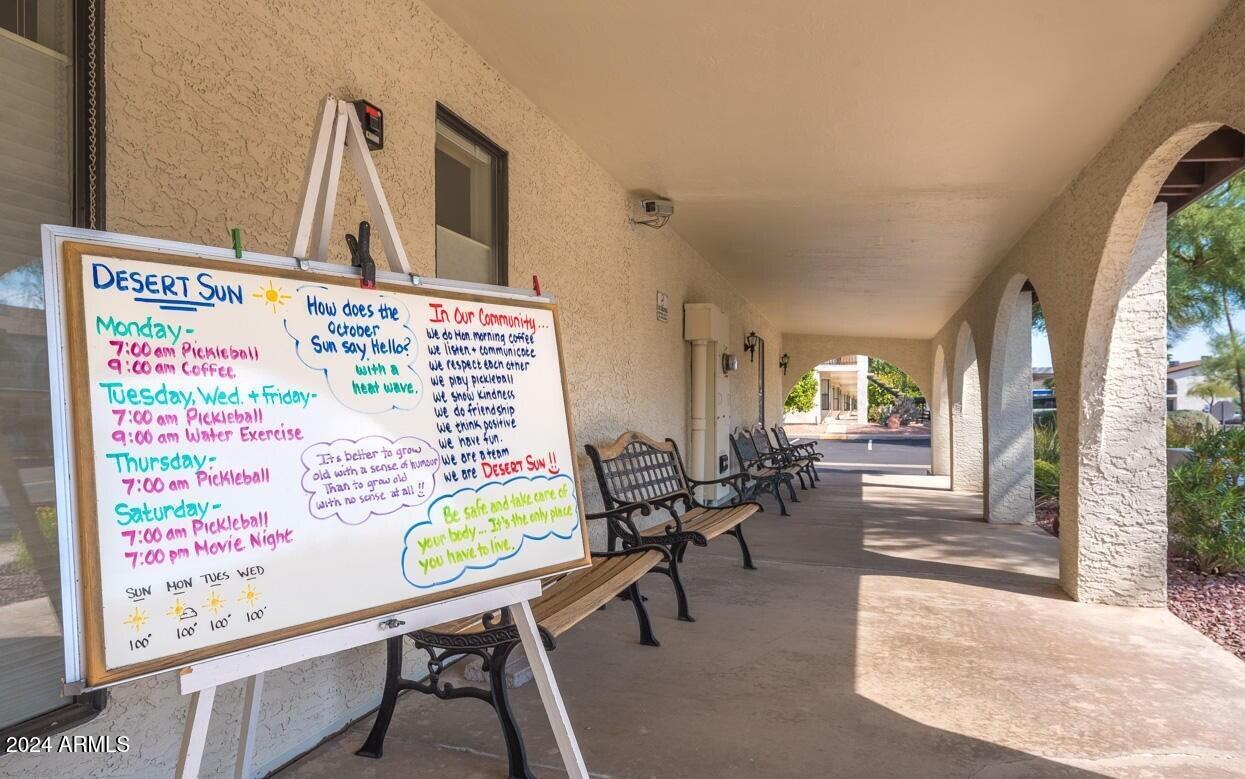 DESERT SUN
Monday-
7:00 am Pickleball
9:00 am Coffee
Tuesday, Wed. + Friday-
7:00 am Pickleball
9:00 am Water Exercise
Thursday-
7:00 am Pickleball
Saturday-
7:00 am Pickleball
7:00 pm Movie Night
SUN MON TUES WED
100° 100° 100° 100°
How does the
October
Sun say, Hello?
with a
heat wave.
It's better to grow
old with a sense of humour
Than to grow old
with no sense at all!!
In Our Community...
We do Mon. morning coffee
We listen + communicate
We respect each other
We play pickleball
We show kindness
We do friendship
We think positive
We have fun.
We are a team
We are DESERT SUN!!
Be safe and take care of
your body... It's the only place
you have to live.
2024 ARMLS